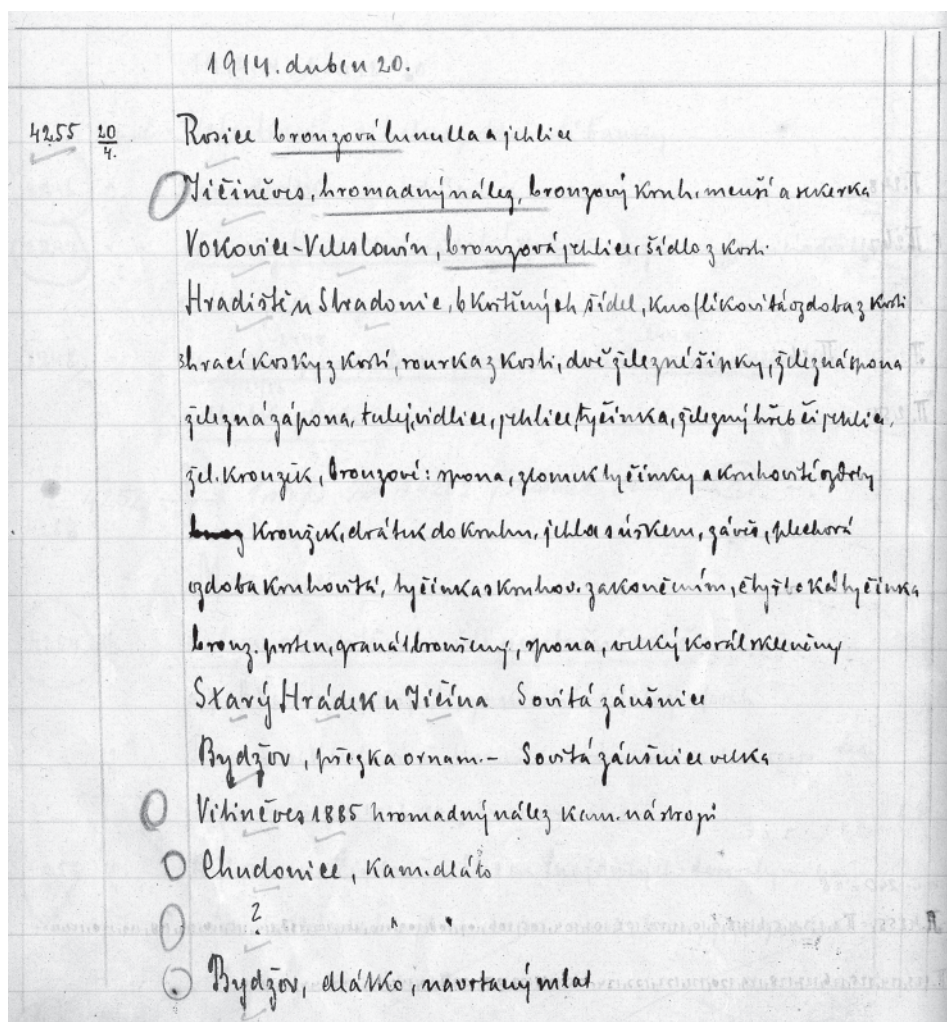 1914. duben 20.
4255 20/4. Rosice bronzová lunulla a jehlice
Jičiněves, hromadný nález, bronzový kruh, menší a sekerka
Vokovice-Veleslavín, bronzová jehlice, šídlo z kosti
Hradiště u Stradonic, 6 kostěných šídel, knoflíkovitá ozdoba z kosti
3 hrací kostky z kosti, rourka z kosti, dvě železné šipky, železná spona
železná zápona, tulej, vidlice, jehlice, tyčinka, železný hřeb či jehlice,
žel. kroužek, bronzové: spona, zlomek tyčinky a kruhovité ozdoby
kroužek, drátek do kruhu, jehla s úškem, závěs, plechová
ozdoba kruhovitá, tyčinka s kruhov. zakončením, čtyřboká tyčinka
bronz. prsten, granát broušený, spona, velký korál skleněný
Starý Hrádek u Jičína Sovitá záušnice
Bydžov, přezka ornam. - Sovitá záušnice velka
Vitiněves 1885 hromadný nález kam. nástrojů
Chudonice, kam. dláto
? " "
Bydžov, dlátko, navrtaný mlat